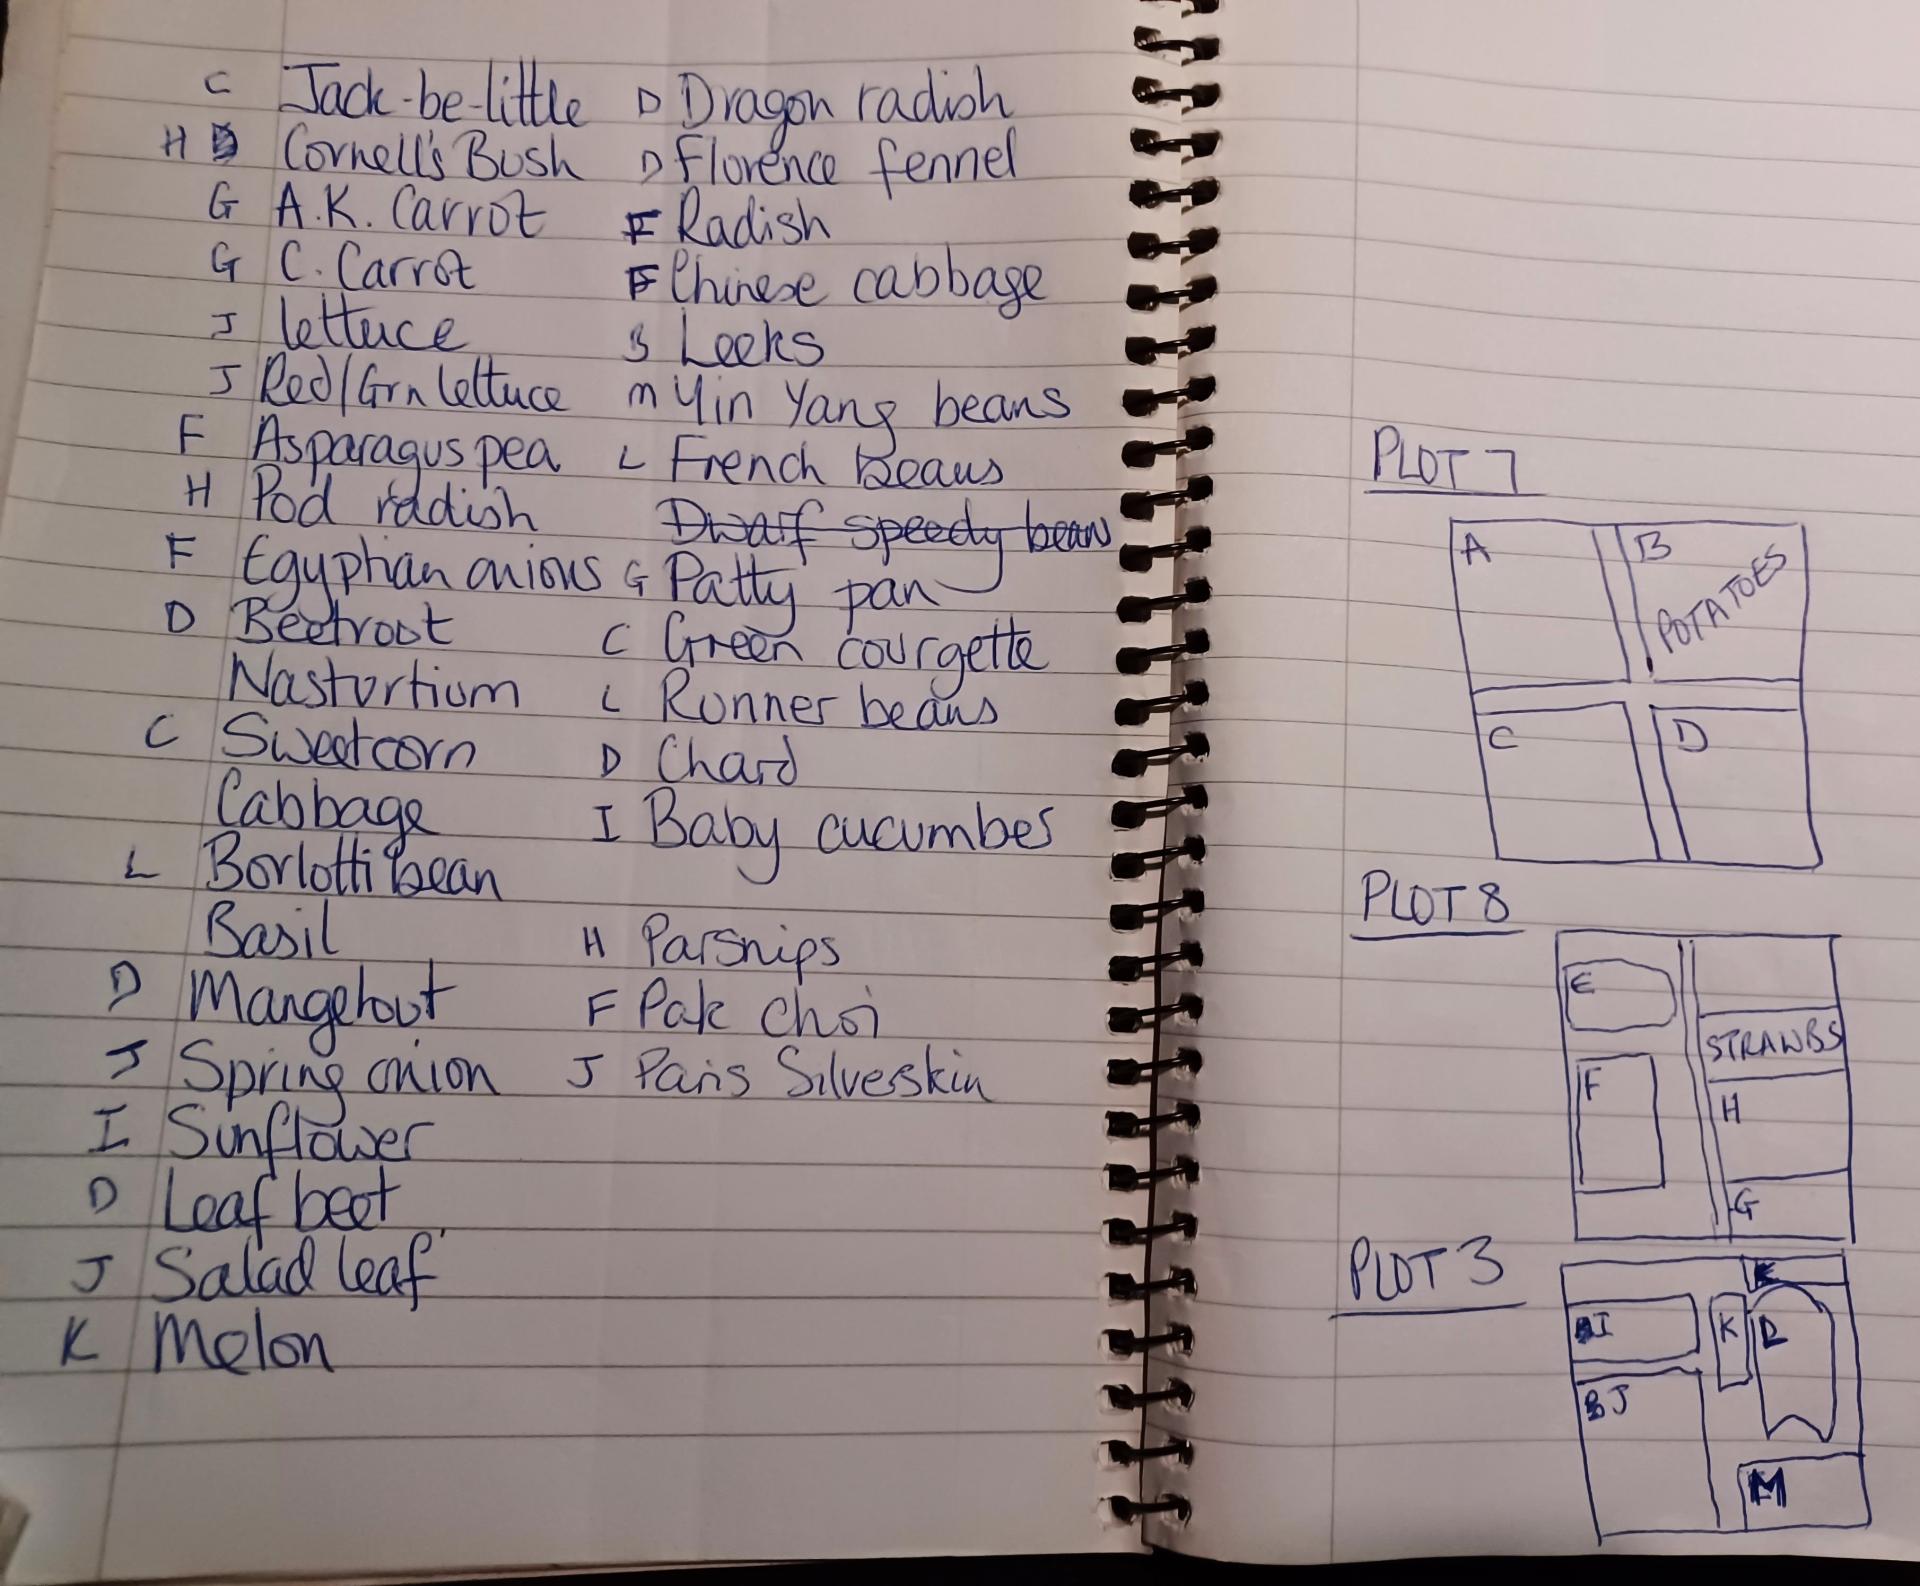 C Jack-be-little
H Cornell's Bush
G A.K. Carrot
G C. Carrot
J lettuce
J Red/Grn lettuce
F Asparagus pea
H Pod radish
F Egyphian onions
D Beetroot
Nasturtium
C Sweetcorn
Cabbage
L Borlotti bean
Basil
D Mangetout
J Spring onion
I Sunflower
D Leaf beet
J Salad leaf
K Melon
D Dragon radish
D Florence fennel
F Radish
F Chinese cabbage
B Leeks
M Yin Yang beans
L French beans
Dwarf speedy bean
G Patty pan
C Green courgette
L Runner beans
D Chard
I Baby cucumbes
H Parsnips
F Pak choi
J Paris Silverskin
PLOT 7
A
B
POTATOES
C
D
PLOT 8
E
STRAWBS
F
H
G
PLOT 3
I
K
L
J
M